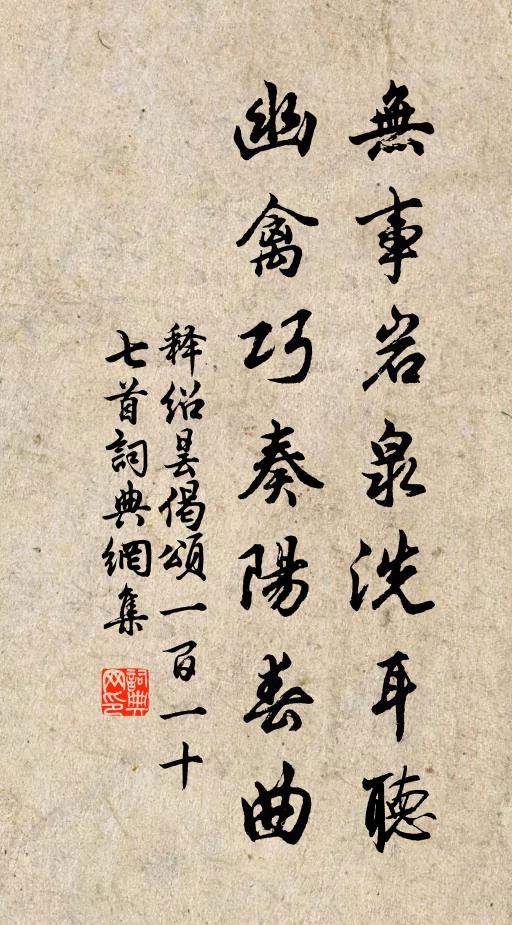 無事岩泉洗耳聽
幽禽巧奏陽春曲
释绍昙偈頌一百一十
七首詞典網集
詞典网印